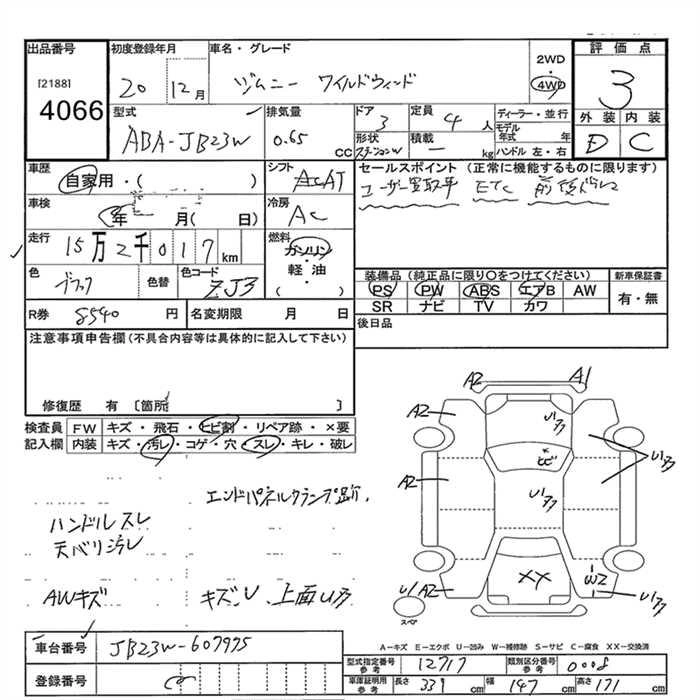 出品番号 初度登録年月 車名・グレード 評価点
[2188] 4066
20 12月 ジムニー ワイルドウィンド 2WD・4WD 3
型式 排気量 ドア 定員 ディーラー・並行 外装 内装
ABA-JB23W 0.65 CC 3 4人 モデル年式 年 D C
形状 ステーションW 積載 － kg ハンドル 左・右
車歴 自家用・( ) シフト AT セールスポイント (正常に機能するものに限ります)
ユーザー買取車 ETC 前後ドラレコ
車検 年 月( 日) 冷房 AC
走行 15万2千017km 燃料 ガソリン・軽油 ( )
色 ブラック 色替 色コード ZJ3
装備品 (純正品に限り○をつけてください) 新車保証書
PS PW ABS エアB AW 有・無
SR ナビ TV カワ
R券 8540円 名変期限 月 日 後日品
注意事項申告欄 (不具合内容等は具体的に記入して下さい)
修復歴 有 〔箇所 〕
検査員記入欄 FW キズ・飛石・ヒビ割・リペア跡・×要
内装 キズ・汚レ・コゲ・穴・スレ・キレ・破レ
エンドパネルクランプ跡介
ハンドルスレ
天バリ汚レ
AWキズ キズ、U、上面Uタ
A2 A1
A2 Uタ
ヒビ Uタ
A2 Uタ
XX W2
U/A2 Uタ
スペア
A-キズ E-エクボ U-凹み W-補修跡 S-サビ C-腐食 XX-交換済
車台番号 JB23W-607975
登録番号
型式指定番号参考 12717 類別区分番号参考 0008
車庫証明用参考 長さ 339cm 幅 147cm 高さ 171cm